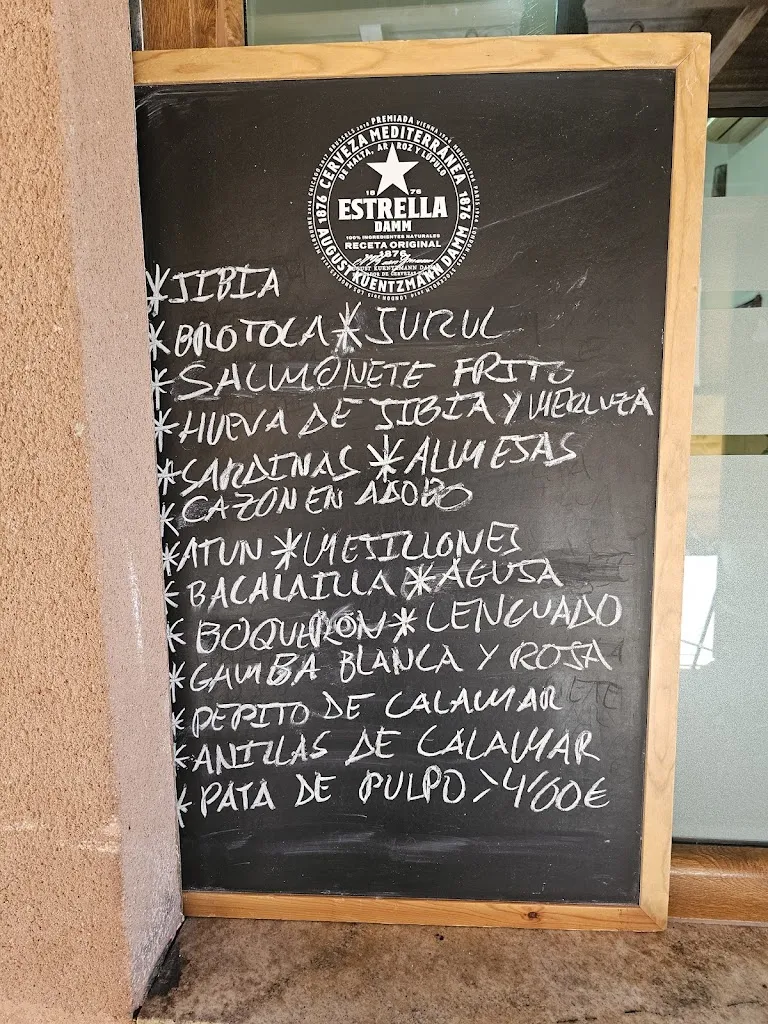 PREMIADA
CERVEZA MEDITERRÁNEA
DE MALTA, ARROZ Y LÚPULO
1876 1876
18 76
ESTRELLA
DAMM
100% INGREDIENTES NATURALES
RECETA ORIGINAL
1876
AUGUST KUENTZMANN DAMM
AUGUST KUENTZMANN DAMM
*JIBIA
*BROTOLA *JURUL
*SALMONETE FRITO
*HUEVA DE JIBIA Y MERLUZA
*SARDINAS *ALMESAS
*CAZON EN ADOBO
*ATUN *MESILLONES
*BACALAILLA *AGUJA
*BOQUERÓN *LENGUADO
*GAMBA BLANCA Y ROJA
*PEPITO DE CALAMAR
*ANILLAS DE CALAMAR
*PATA DE PULPO > 4'00€